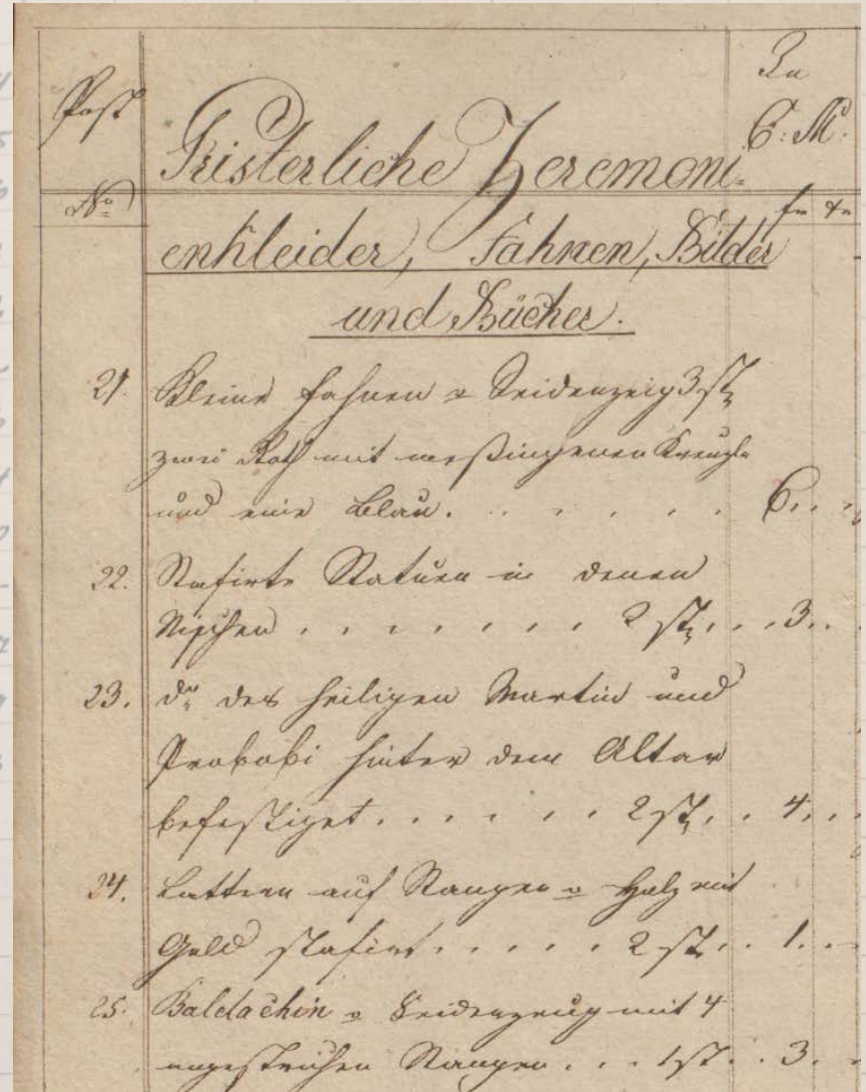 Post
In
C: M:
Pristerliche Zeremoni-
No
fr xr
enkleider, Fahnen, Bilder
und Bücher.
21. Kleine Fahnen v Seidenzeig 3 st
zwei Roth mit meßingenen Kreuzln
und eine Blau. . . . . . . 6. .
22. Stafirte Statuen in denen
Nischen . . . . . . . 2 st. . . 3. .
23. do des heiligen Martin und
hinter dem Altar
befestiget. . . . . . 2 st. . 4. .
24. Lattern auf Stangen v Holz mit
Gold stafirt. . . . . 2 st. . 1. .
25. Baldachin v Seidenzeug mit 4
angestrichen Stangen. . . 1 st. . 3. .